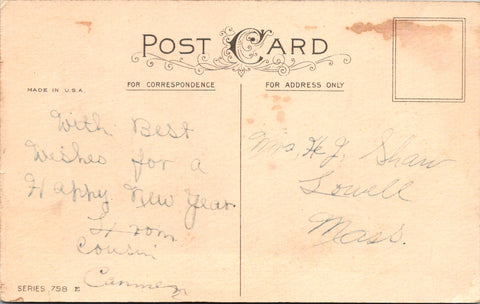 POST CARD
MADE IN U.S.A.
FOR CORRESPONDENCE
With Best
Wishes for a
Happy New Year
From
Cousin
SERIES 75B E
FOR ADDRESS ONLY
Mrs. H. J. Shaw
Lowell
Mass.